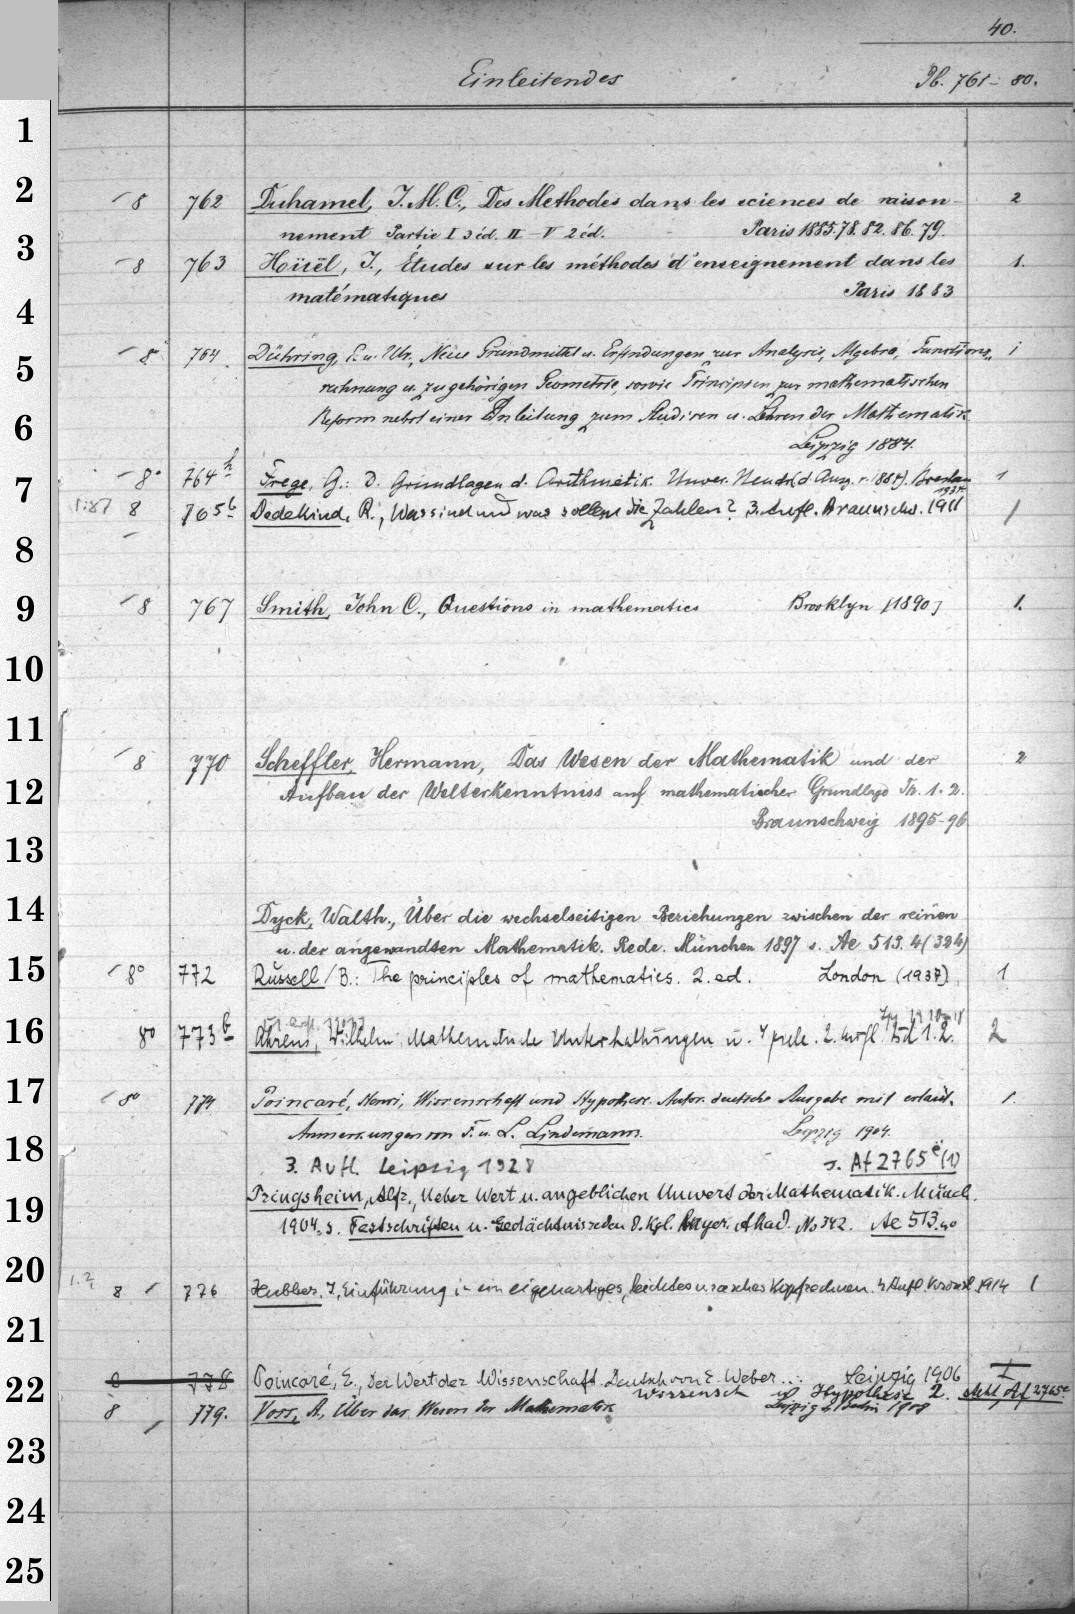 40.
Einleitendes Pb. 761-80.
1
2
8 762 Duhamel, J. M. C., Des Methodes dans les sciences de raison- 2
nement Partie I 3 éd. II - V 2 éd. Paris 1885. 78. 82. 86. 79.
3
8 763 Hoüel, J., Études sur les méthodes d'enseignement dans les 1.
matématiques Paris 1883
4
5
8 764 Dühring, E. u. Ulr., Neue Grundmittel u. Erfindungen zur Analysis, Algebra, Functions 1
rechnung u. zugehörigen Geometrie, sowie Principien zur mathematischen
6
Reform nebst einer Anleitung zum Studiren u. Lehren der Mathematik
Leipzig 1884.
7
8° 764 h Frege, G.: D. Grundlagen d. Arithmetik. Unver. Neudr. (d. Ausg. v. 1884). Breslau 1
1934.
8 765 b Dedekind, R., Was sind und was sollen die Zahlen? 3. Aufl. Braunschw. 1911 1
8
9
8 767 Smith, John C., Questions in mathematics Brooklyn [1890] 1.
10
11
8 770 Scheffler, Hermann, Das Wesen der Mathematik und der 2
12
Aufbau der Welterkenntniss auf mathematischer Grundlage Th. 1. 2.
Braunschweig 1895-96
13
14
Dyck, Walth., Über die wechselseitigen Beziehungen zwischen der reinen
u. der angewandten Mathematik. Rede. München 1897 s. Ae 513. 4 (324)
15
8° 772 Russell / B.: The principles of mathematics. 2. ed. London (1937). 1
16
8° 773 b Ahrens, Wilhelm Mathematische Unterhaltungen u. Spiele. 2. Aufl. Bd 1. 2. 2
17
8° 774 Poincaré, Henri, Wissenschaft und Hypothese. Autor. deutsche Ausgabe mit erläut. 1.
Anmerkungen von F. u. L. Lindemann. Leipzig 1904.
18
3. Aufl. Leipzig 1928 s. Af 2765 e (1)
Pringsheim, Alfr., Ueber Wert u. angeblichen Unwert der Mathematik. Münch.
19
1904. s. Festschriften u. Gedächtnisreden d. Kgl. Bayer. Akad. No 342. Ae 513.40
20
8 776 Hubber, J, Einführung in ein eigenartiges, leichtes u. rasches Kopfrechnen. 4 Aufl. 1914 1
21
22
8 778 Poincaré, E., Der Wert der Wissenschaft. Deutsch von E. Weber... Leipzig 1906 1
Wissensch u Hypothese 2. Af 2765 e
8 779. Voss, A., Über das Wesen der Mathematik Leipzig & Berlin 1908
23
24
25